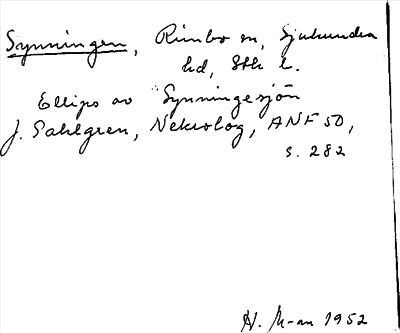 Synningen, Rimbo sn, Sjuhundra
hd, Sth l.
Ellips av Synningesjön
J. Sahlgren, Nekrolog, ANF 50,
s. 282
H. M-an 1952